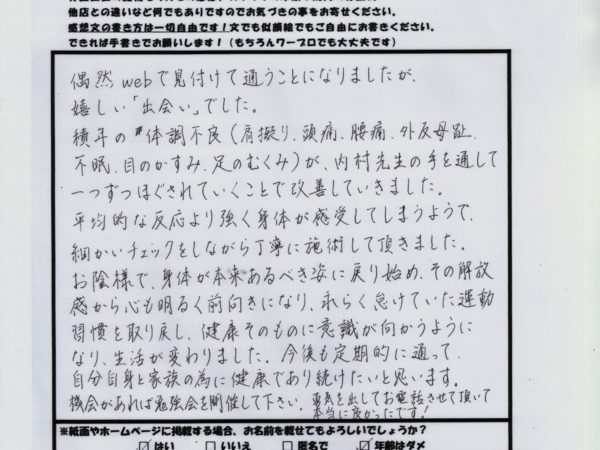 他店との違いなど何でもありですのでお気づきの事をお寄せください。
感想文の書き方は一切自由です！文でも似顔絵でもご自由にお書きください。
できれば手書きでお願いします！（もちろんワープロでも大丈夫です）
偶然webで見付けて通うことになりましたが、
嬉しい「出会い」でした。
積年の体調不良（肩擬り、頭痛、腰痛、外反母趾、
不眠、目のかすみ、足のむくみ）が、内村先生の手を通して
一つずつほぐされていくことで改善していきました。
平均的な反応より強く身体が感受してしまうようで、
細かいチェックをしながら丁寧に施術して頂きました。
お陰様で、身体が本来あるべき姿に戻り始め、その解放
感から心も明るく前向きになり、永らく怠けていた運動
習慣を取り戻し、健康そのものに意識が向かうように
なり、生活が変わりました。今後も定期的に通って、
自分自身と家族の為に健康であり続けたいと思います。
機会があれば勉強会を開催して下さい。勇気を出してお電話させて頂いて
本当に良かったです！
※紙面やホームページに掲載する場合、お名前を載せてもよろしいでしょうか？
はい いいえ 匿名で 年齢はダメ